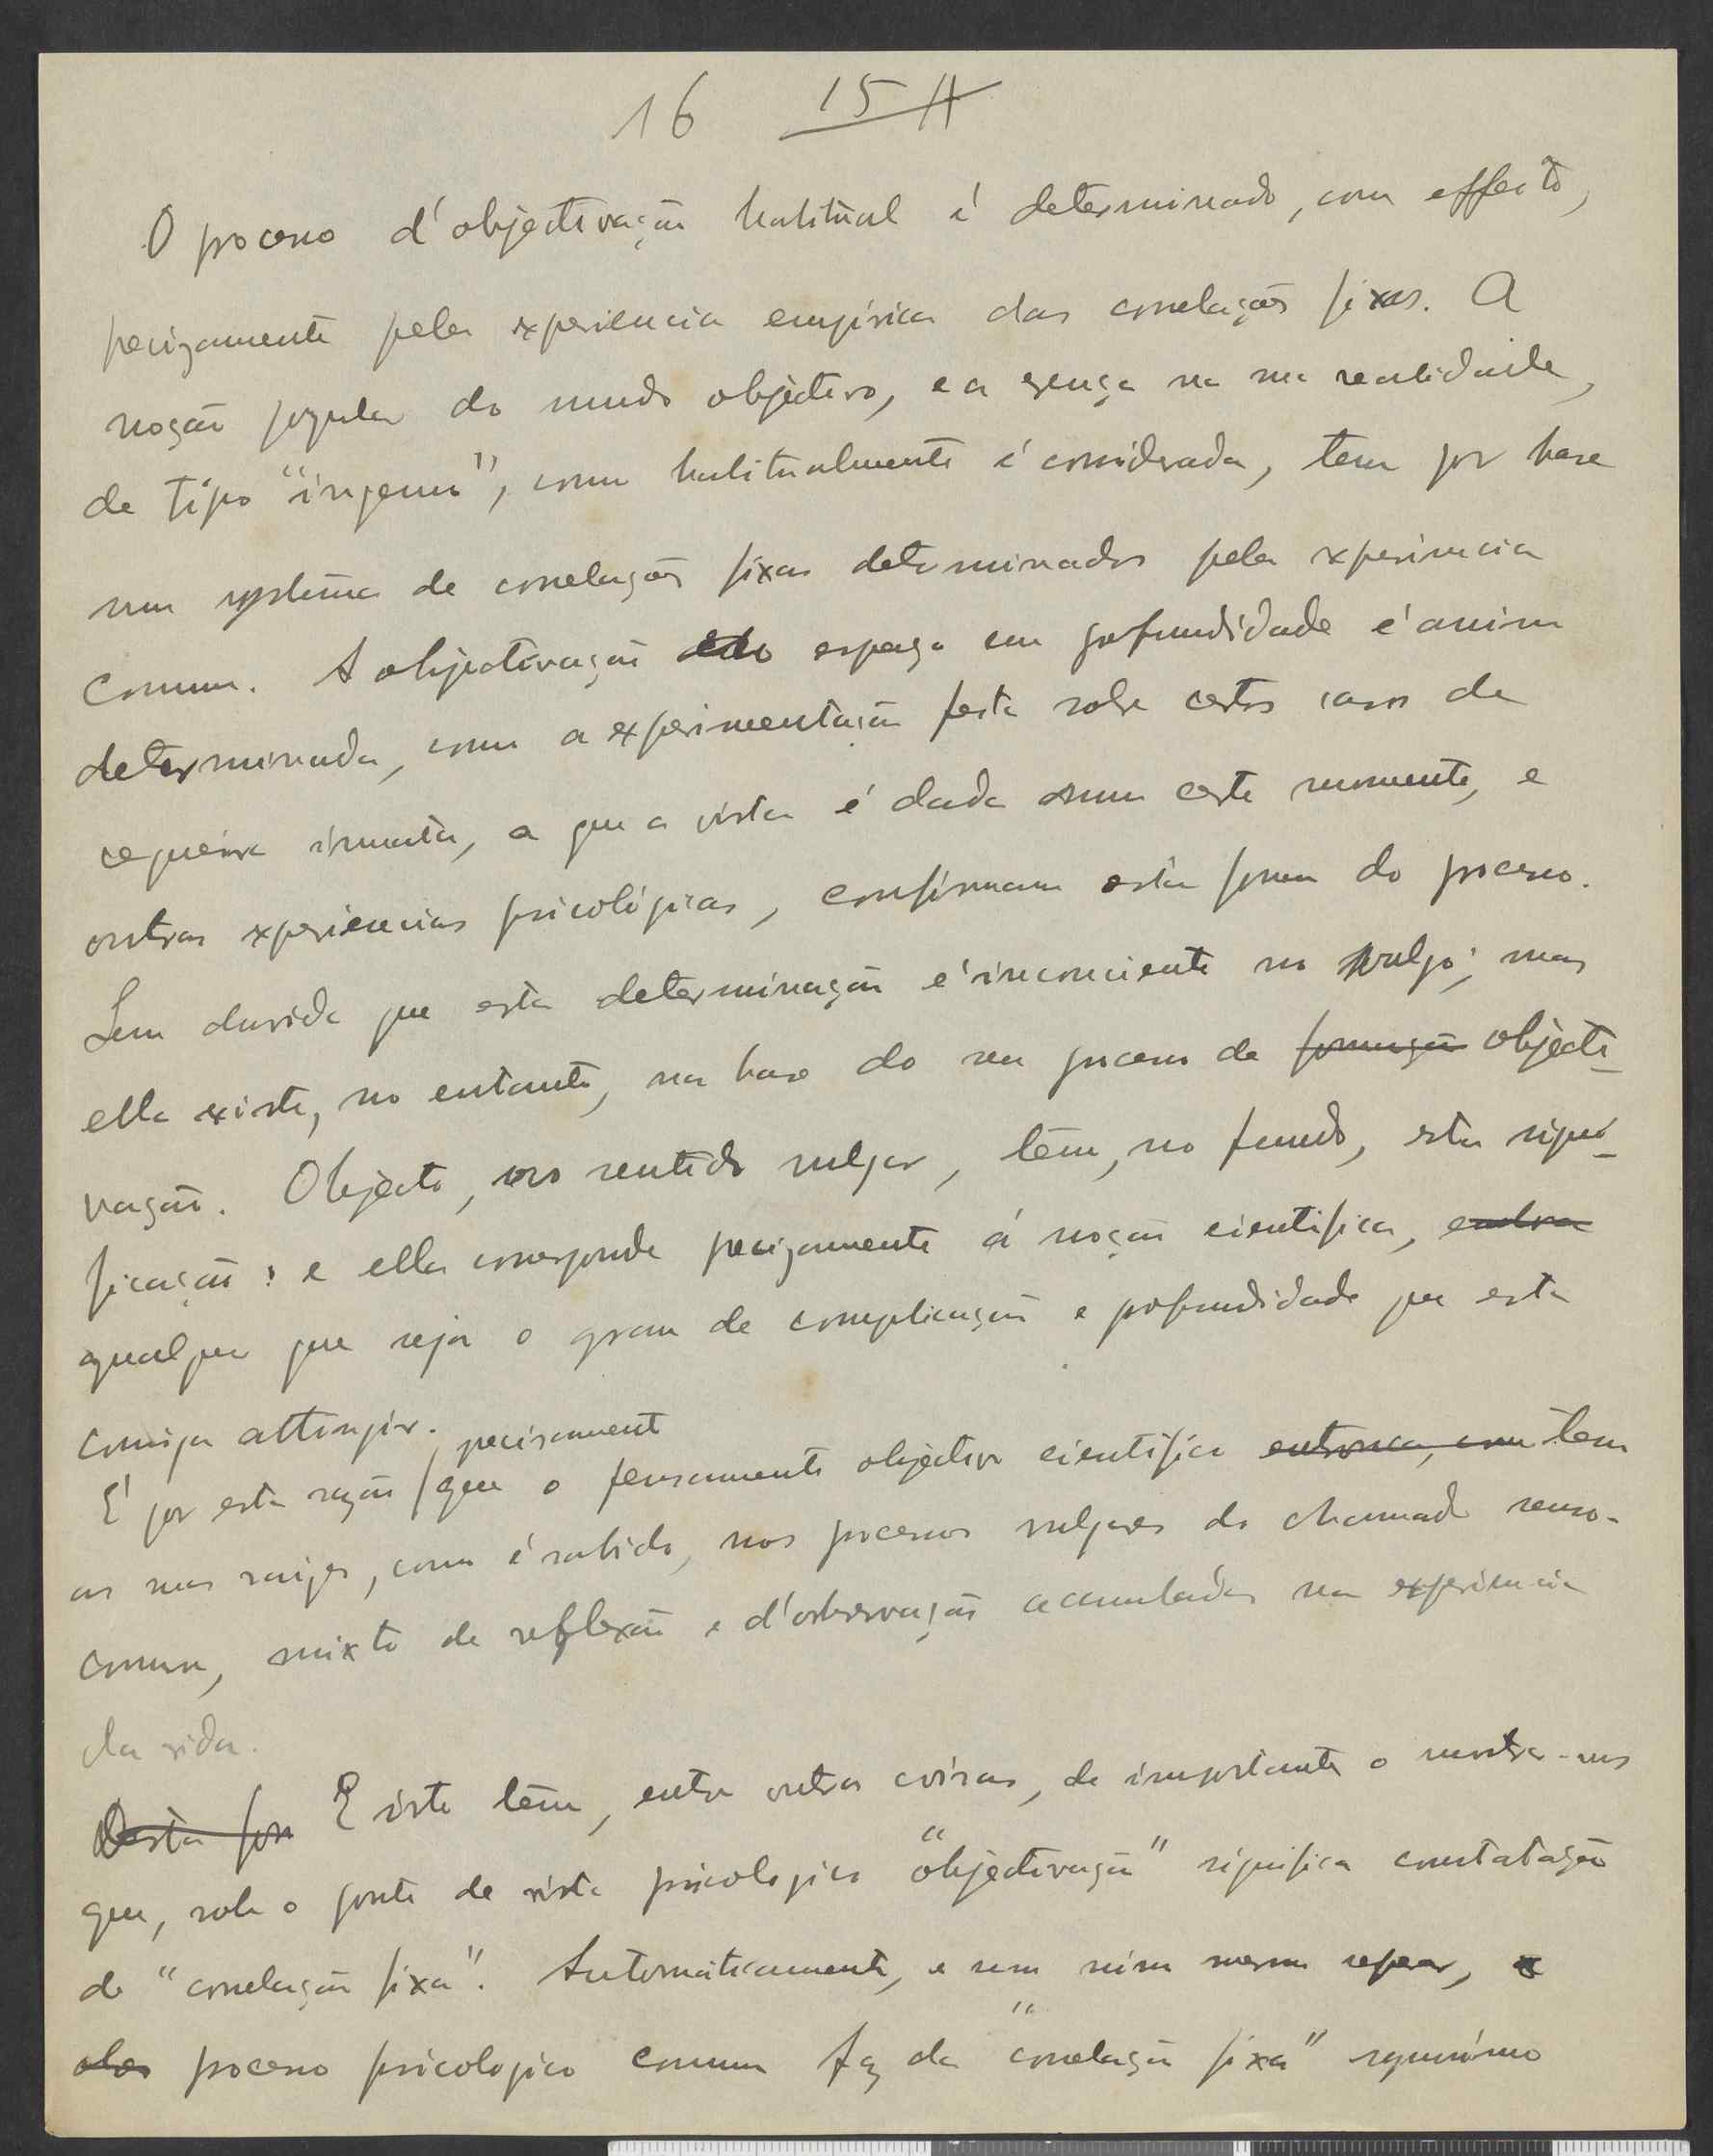 16 15 A
O processo d'objectivação habitual é determinado, com effeito,
precizamente pela experiencia empirica das correlações fixas. A
noção popular do mundo objectivo, e a crença na sua realidade,
de tipo "ingenuo", como habitualmente é considerada, tem por base
num systema de correlações fixas determinados pela experiencia
comum. A objectivação do espaço em profundidade é assim
determinada, como a experimentação feita sobre certos casos de
cegueira innata, a que a vista é dada num certo momento, e
outras experiencias psicológicas, confirmam esta forma do processo.
Sem duvida que esta determinação é inconciente no vulgo; mas
ella existe, no entanto, na base do seu processo de formação objecti-
vação. Objecto, no sentido vulgar, têm, no fundo, esta signi-
ficação: e ella corresponde precizamente á noção cientifica, embora
qualquer que seja o grau de complicação e profundidade que esta
consiga attingir.
É por esta razão precisament que o pensamento objectivo cientifico entronca, com tem
as suas raizes, como é sabido, nos processos vulgares do chamado senso-
comum, mixto de reflexão e d'observação accumuladas na experiencia
da vida.
Desta for E isto têm, entre outras coisas, de importante o mostrar-nos
que, sob o ponto de vista psicologico "objectivação" significa constatação
de "correlação fixa". Automaticamente, e sem nisso mesmo reparar, o
processo psicologico comum faz da "correlação fixa" synonimo